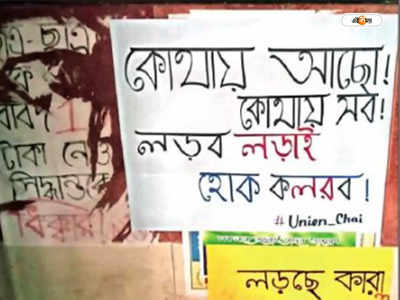 কোথায় আছো!
কোথায় সব!
লড়ব লড়াই
হোক কলরব!
# Union_Chai
লড়ছে কারা
ছাত্র-ছাত্র
টাকা নেও
সিদ্ধান্তকে
ধিক্কার
এই সময়